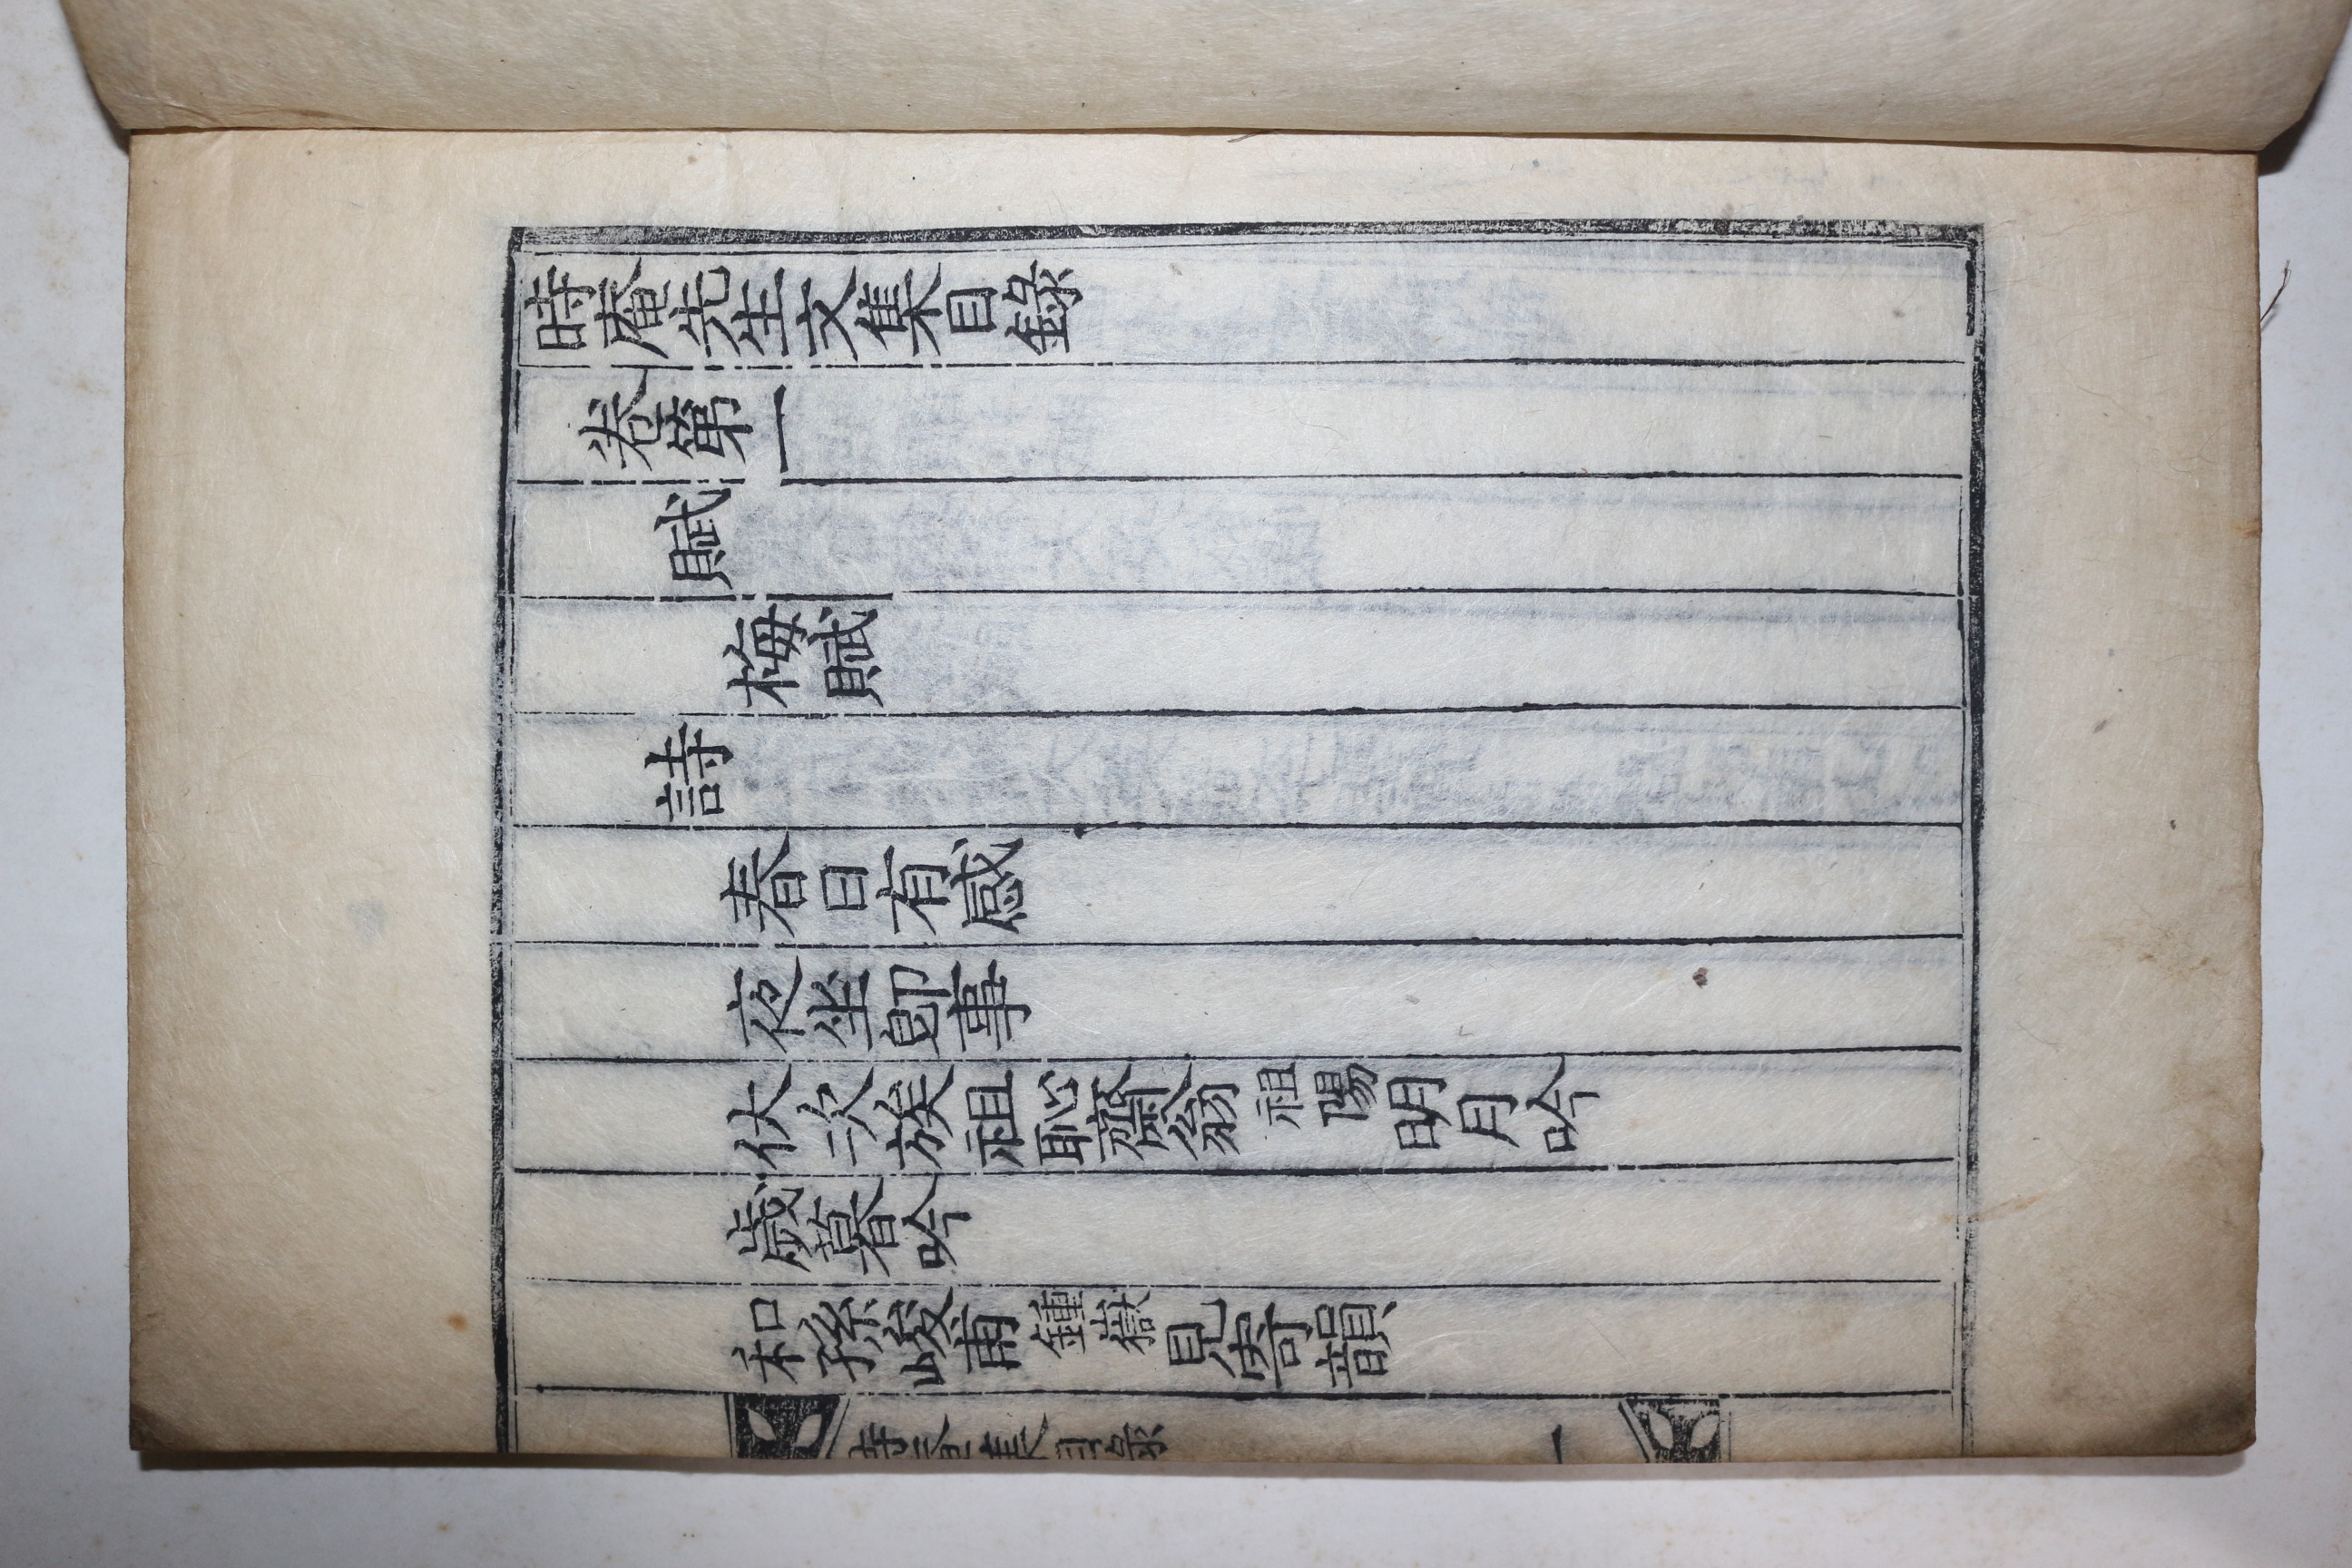 時庵先生文集目錄
卷第一
賦
梅賦
詩
春日有感
夜坐卽事
伏次族祖恥齋翁祖陽明月吟
歲暮吟
和孫峻甫鍾嶽見寄韻
時庵集目錄 一